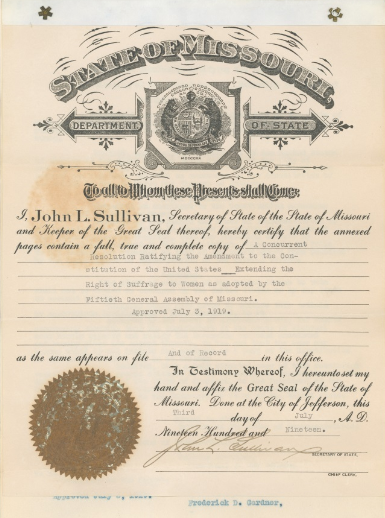 STATE OF MISSOURI,
DEPARTMENT OF STATE
To all to Whom these Presents shall Come:
I, John L. Sullivan, Secretary of State of the State of Missouri
and Keeper of the Great Seal thereof, hereby certify that the annexed
pages contain a full, true and complete copy of A Concurrent
Resolution Ratifying the Amendment to the Con-
stitution of the United States Extending the
Right of Suffrage to Women as adopted by the
Fiftieth General Assembly of Missouri.
Approved July 3, 1919.
as the same appears on file And of Record in this office.
In Testimony Whereof, I hereunto set my
hand and affix the Great Seal of the State of
Missouri. Done at the City of Jefferson, this
Third day of July, A.D.
Nineteen Hundred and Nineteen.
John L. Sullivan
SECRETARY OF STATE.
CHIEF CLERK.
Approved July 3, 1919.
Frederick D. Gardner,